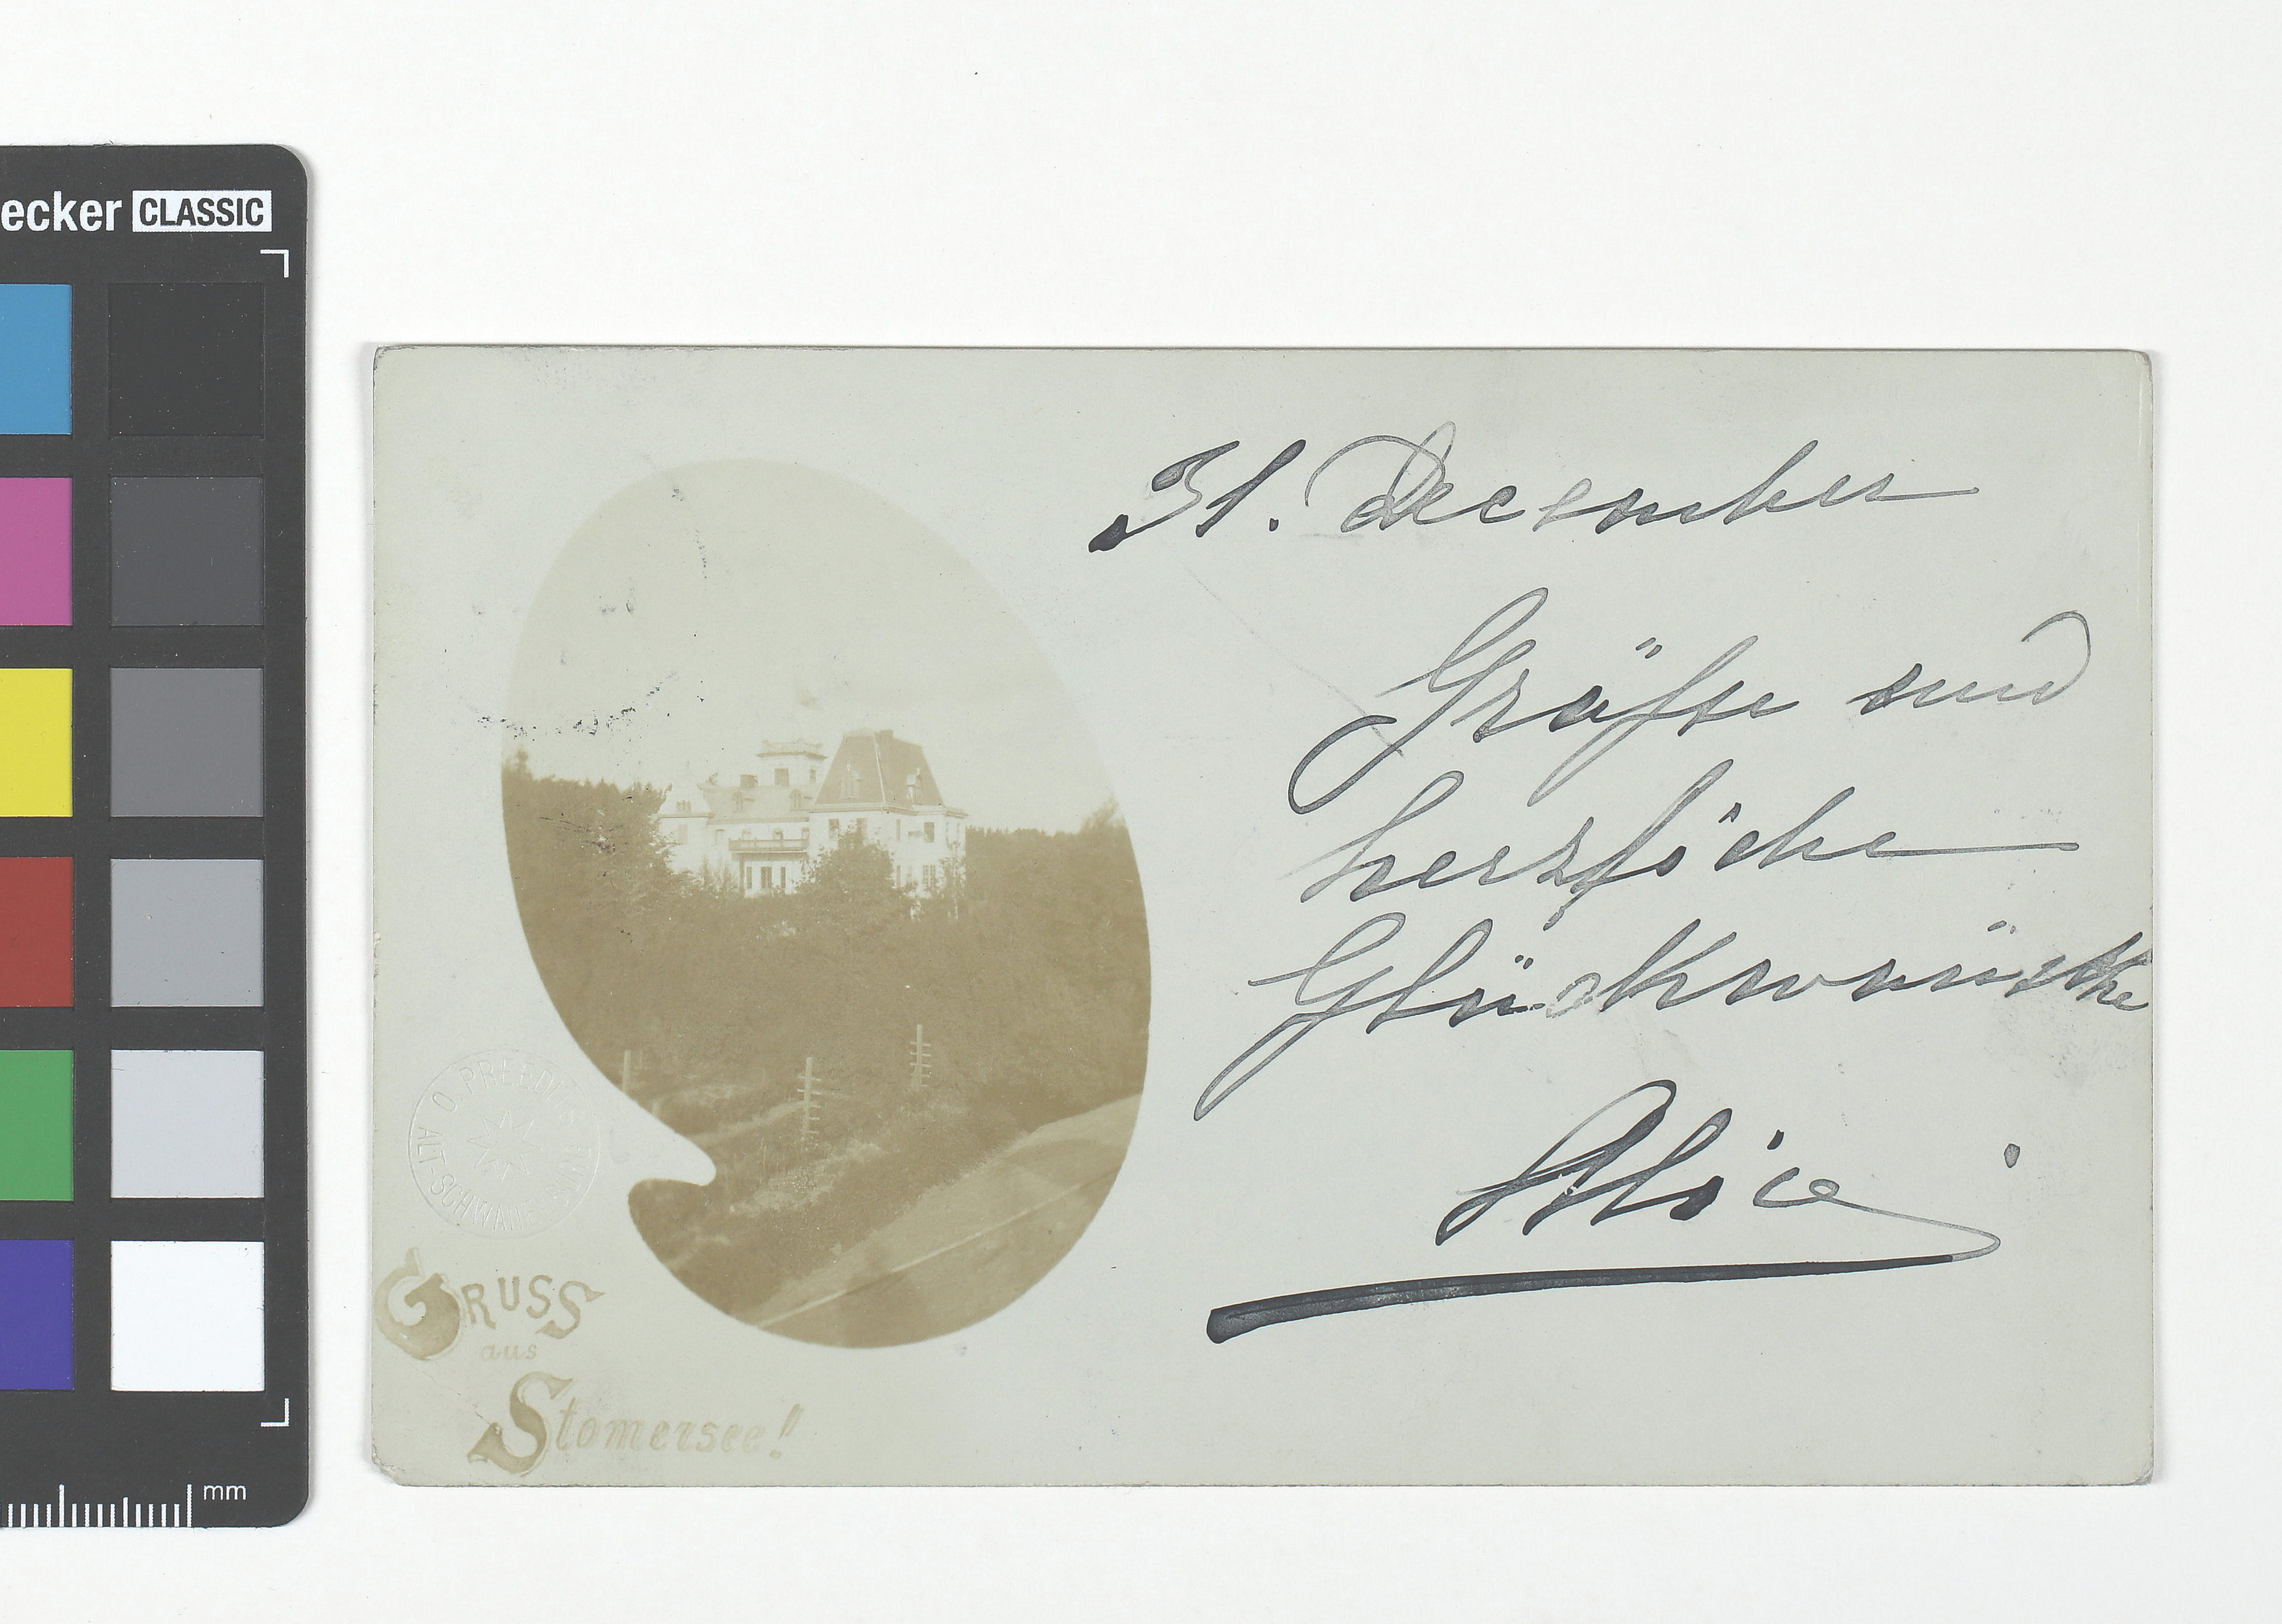 ecker CLASSIC
31. December
Grüsse und
herzliche
Glückwünsche
Alice
O. PREEDIT
ALT-SCHWANEBURG
GRUSS
aus
Stomersee!
mm